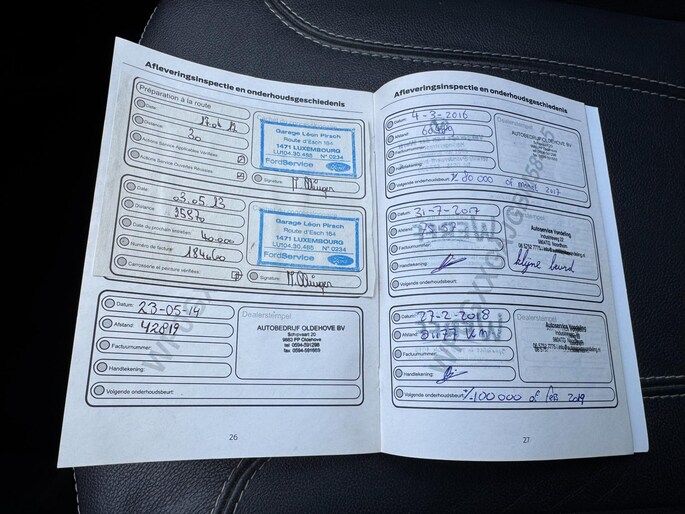 Afleveringsinspectie en onderhoudsgeschiedenis
Préparation à la route
Date:
Distance:
30
Actions Service Applicables Vérifiées:
Actions Service Ouvertes
Garage Léon Pirsch
Route d'Esch 164
1471 LUXEMBOURG
LU104.30.485 N° 0234
FordService
Ford
Signature:
Date:
03.05.13
Distance:
Date du prochain entretien:
40.000
Numéro de facture:
184400
Carrosserie et peinture vérifiées:
Garage Léon Pirsch
Route d'Esch 164
1471 LUXEMBOURG
LU104.30.485 N° 0234
FordService
Ford
Signature:
Datum:
23-05-14
Afstand:
42819
Factuurnummer:
Handtekening:
Volgende onderhoudsbeurt:
Dealerstempel
AUTOBEDRIJF OLDEHOVE BV
Schipvaart 20
9883 PP Oldehove
tel 0594-591298
fax 0594-591669
26
Afleveringsinspectie en onderhoudsgeschiedenis
Datum:
4-3-2016
Afstand:
Volgende onderhoudsbeurt:
80 000 of maart 2017
AUTOBEDRIJF OLDEHOVE BV
Datum:
31-7-2017
Afstand:
Factuurnummer:
Handtekening:
Volgende onderhoudsbeurt:
Autoservice
kleine beurt
Datum:
27-2-2018
Afstand:
Factuurnummer:
Handtekening:
Volgende onderhoudsbeurt:
100 000 of feb 2019
Dealerstempel
Autoservice
27